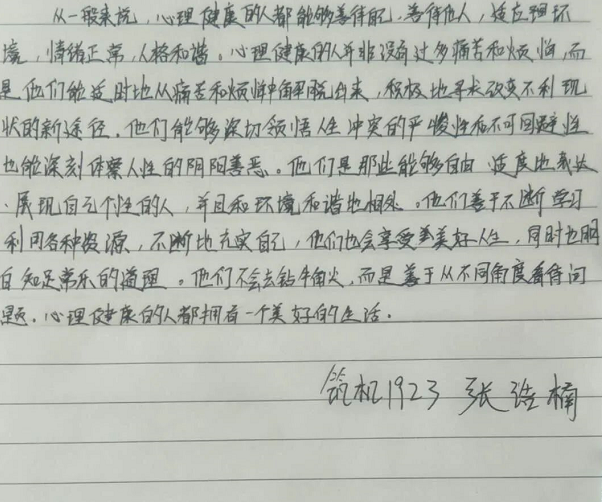 从一般来说，心理健康的人都能够善待自己，善待他人，适应环
境，情绪正常，人格和谐。心理健康的人并非没有过多痛苦和烦恼，而
是他们能适时地从痛苦和烦恼中解脱出来，积极地寻求改变不利现
状的新途径。他们能够深切领悟人生冲突的严峻性和不可回避性
也能深刻体察人性的阴阳善恶。他们是那些能够自由适度地表达
、展现自己个性的人，并且和环境和谐地相处。他们善于不断学习
利用各种资源，不断地充实自己，他们也会享受美好人生，同时也明
白知足常乐的道理。他们不会去钻牛角尖，而是善于从不同角度看待问
题。心理健康的人都拥有一个美好的生活。
筑机1923 张 楠